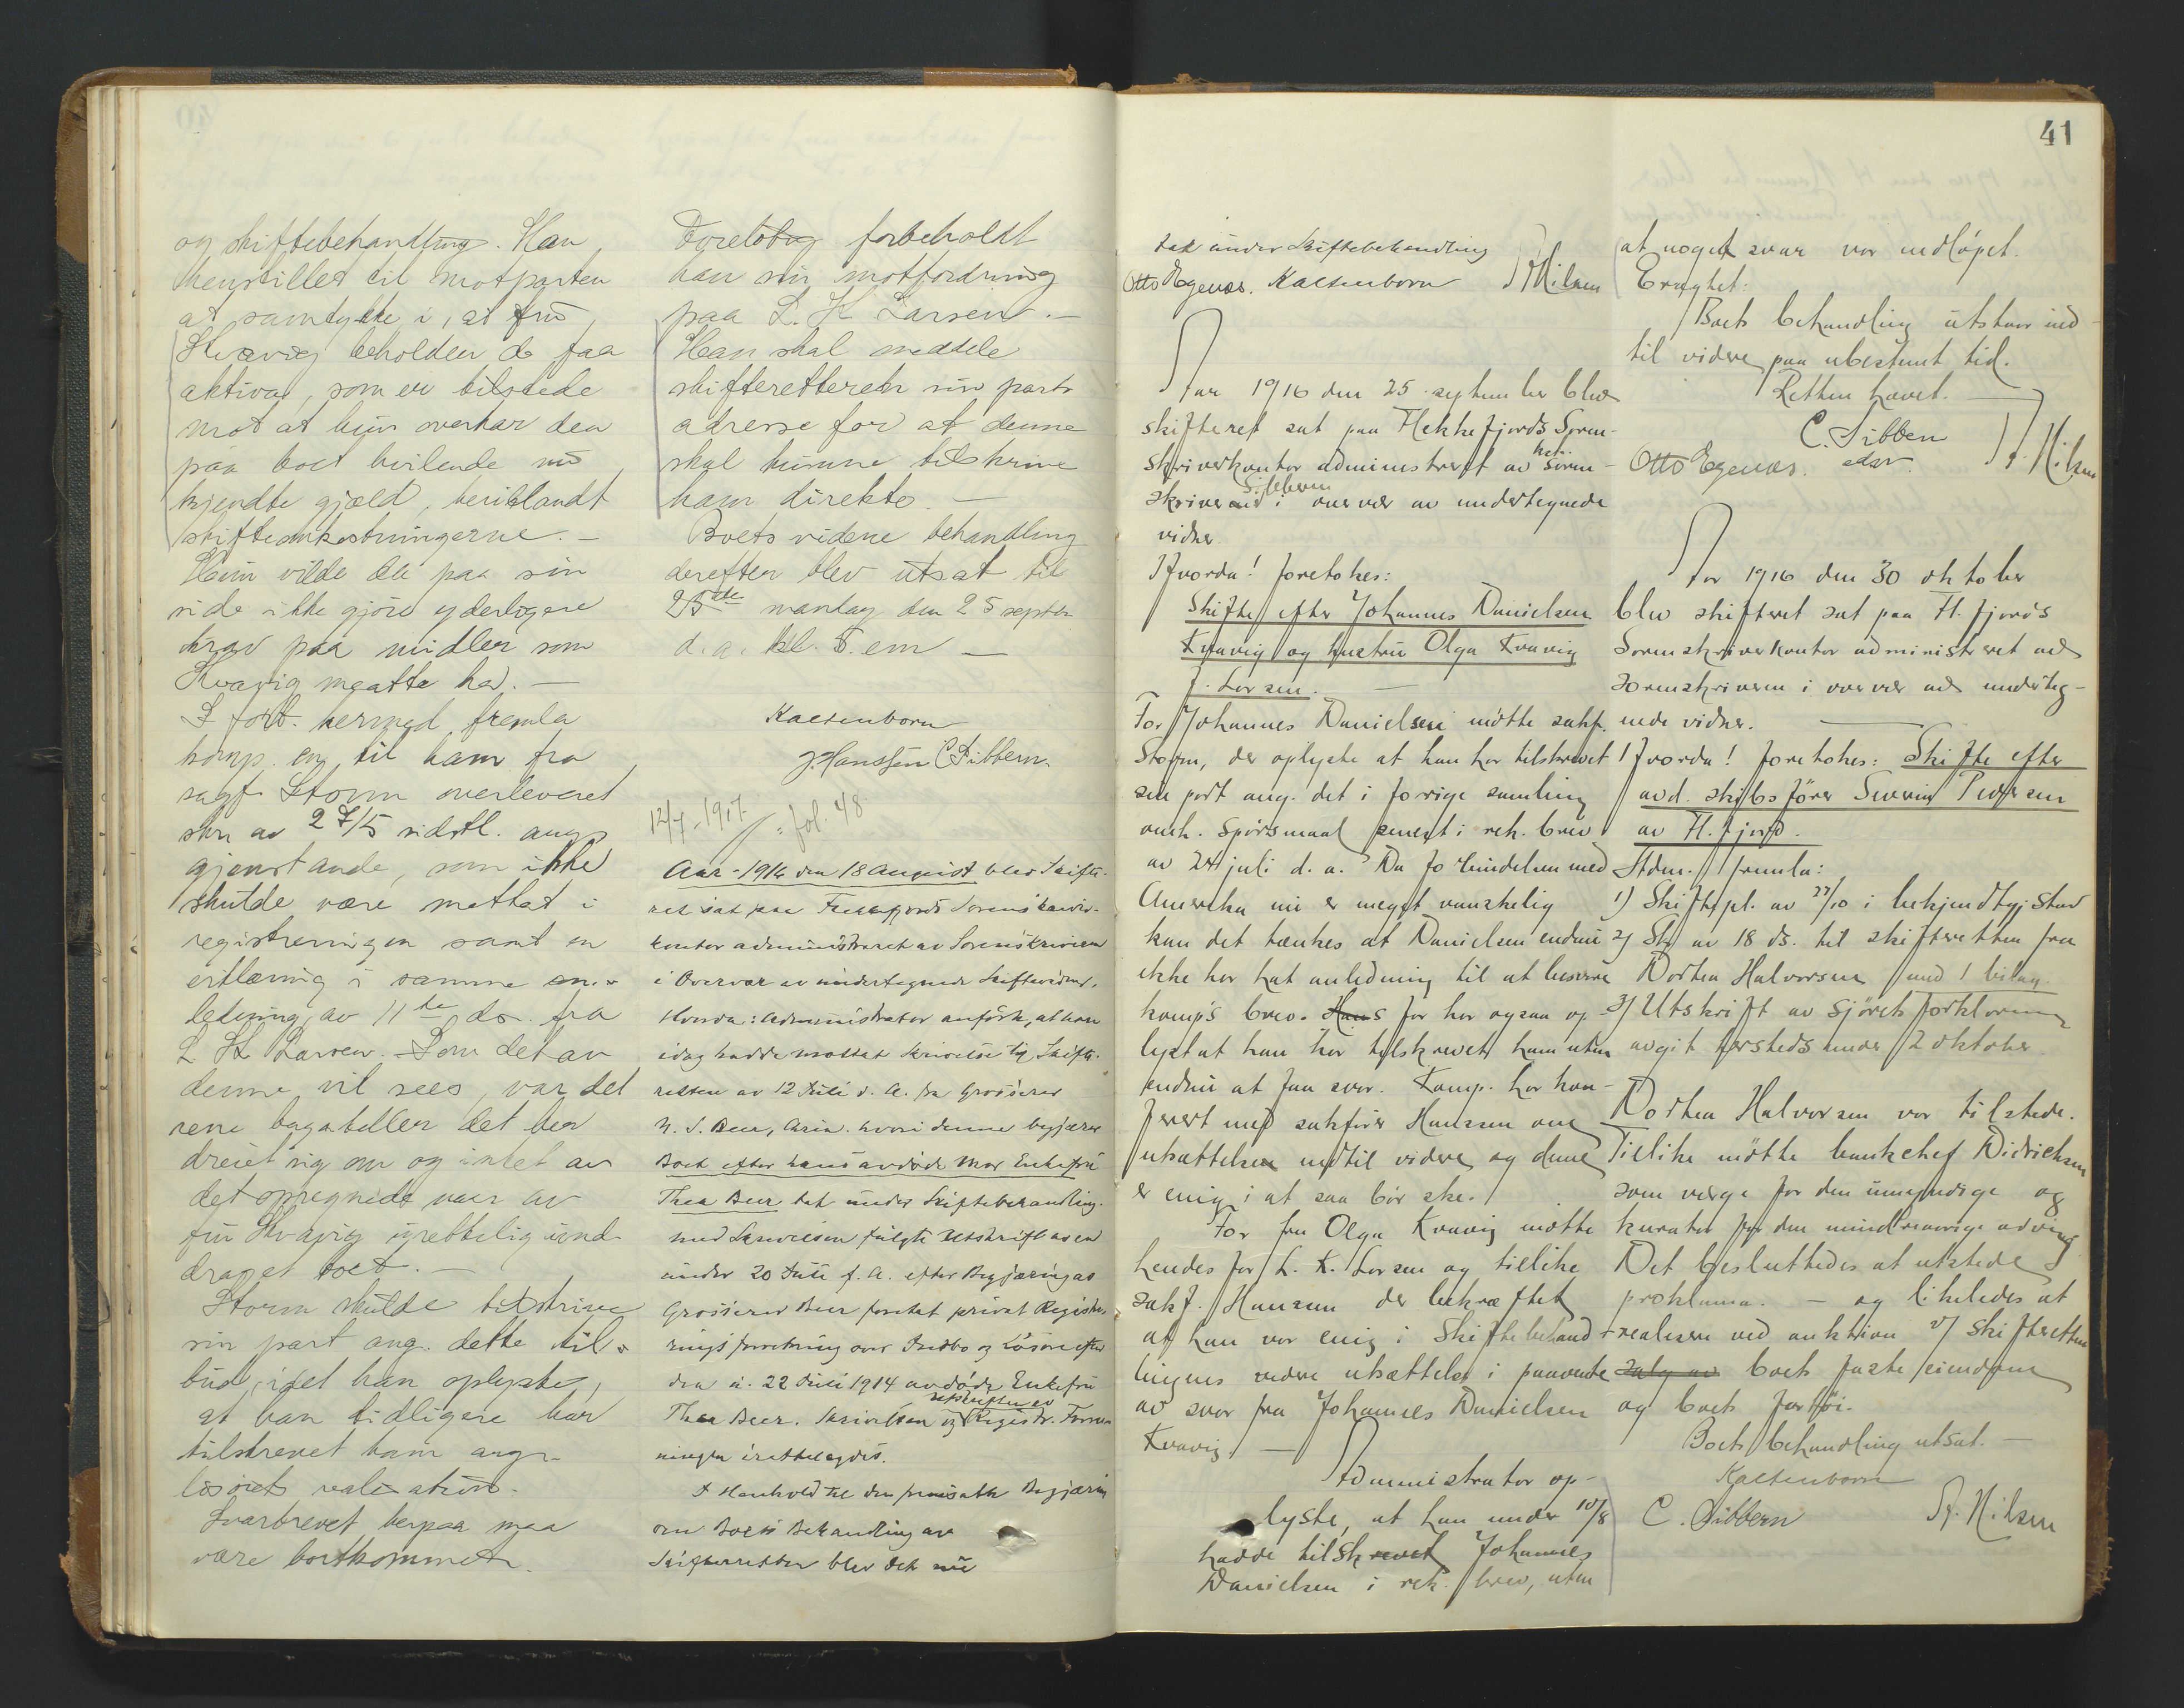 og skiftebehandling. Han
henstiller til motparten
at samtykke i, at fru
Kvavig beholder de faa
aktiva, som er tilstede
mot at hun overtar den
paa boet hvilende nu
kjendte gjæld, heriblandt
skifteomkostningerne. —
Hun vilde da paa sin
side ikke gjøre yderligere
krav paa midler som
Kvavig maatte ha. —
I forb. hermed fremla
komp. en til ham fra
sagf. Storm overleveret
skr av 27/5 sidstl. ang.
gjenstande, som ikke
skulde være mottat i
registreringen samt en
erklæring i samme an-
ledning av 11te ds. fra
L K Larsen. Som det av
denne vil sees, var det
rene bagateller det her
dreiet sig om og intet av
det opregnede var av
fru Kvavig urettelig und-
draget boet. —
Storm skulde tilskrive
sin part ang. dette til-
bud, idet han oplyste,
at han tidligere har
tilskrevet ham ang.
løsørets realisation.
Svarbrevet herpaa maa
være bortkommet.
Foreløbig forbeholdt
han sin motfordring
paa L. K Larsen. —
Han skal meddele
skifteretten sin parts
adresse for at denne
skal kunne tilskrive
ham direkte. —
Boets videre behandling
derefter blev utsat til
25de mandag den 25 septbr
d. a. kl. 5. em —
Kaltenborn
J. Hanssen C Sibbern.
12/7. 1917. fol. 48
Aar 1916 den 18 August blev Skifte-
ret sat paa Flekkefjords Sorenskriver-
kontor administreret av Sorenskriveren
i Overvær av undertegnede Skiftevidner.
Hvorda: Administrator anførte, at han
idag hadde mottat Skrivelse til Skifte-
retten av 12 Juli d. A. fra Grosserer
N. S. Beer, hvori denne begjærer
Boet efter hans avdøde Mor Enkefru
Thea Beer tat under Skiftebehandling.
Med Skrivelsen fulgte Utskrift av en
under 20 Juli f. A. efter Begjæring av
Grosserer Beer foretat privat Registre-
rings forretning over Indbo og Løsøre efter
den u. 22 Juli 1914 avdøde Enkefru
Thea Beer. Skrivelsen og utskriften av Registr. Forret-
ningen irettelagdes.
I Henhold til den fremsatte Begjæring
om Boets Behandling av
Skifteretten blev det nu
41
tat under Skiftebehandling
Otto Egenes. Kaltenborn Nilsen
Aar 1916 den 25 september blev
skifteret sat paa Flekkefjords Soren-
skriverkontor administrert av kst. Soren-
skriver Sibbern i overvær av undertegnede
vidner.
Hvorda! foretokes:
Skifte efter Johannes Danielsen
Kvavig og hustru Olga Kvavig
f. Larsen. —
For Johannes Danielsen møtte sakf.
Storm, der oplyste at han har tilskrevet
sin part ang. det i forrige samling
omh. spørsmaal senest i rek. brev
av 24 juli d. a. Da forbindelsen med
Amerika nu er meget vanskelig
kan det tænkes at Danielsen endnu
ikke har hat anledning til at besvare
komp's brev. Hans far har ogsaa op-
lyst at han har tilskrevet ham uten
endnu at faa svar. Komp. har kon-
ferert med sakfører Hanssen om
utsættelse indtil videre og denne
er enig i at saa bør ske.
For fru Olga Kvavig møtte
hendes far L. K. Larsen og tillike
sakf. Hanssen der bekræftet
at han var enig i Skiftebehand-
lingens videre utsættelse i paavente
av svar fra Johannes Danielsen
Kvavig. —
Administrator op-
lyste, at han under 10/8
hadde tilskrevet Johannes
Danielsen i rek. brev, uten
at noget svar var indløpet.
Eragtet:
Boets behandling utstaar ind-
til videre paa ubestemt tid.
Retten hævet. —
C. Sibbern
Otto Egenes. edsv. Nilsen
Aar 1916 den 30 oktober
blev skifteret sat paa Fl.fjords
Sorenskriverkontor administreret av
sorenskriveren i overvær av underteg-
nede vidner. —
Hvorda! foretokes: Skifte efter
avd. skibsfører Severin Pedersen
av Fl.fjord.
Adm. fremla:
1) Skiftepl. av 27/10 i bekjendtgj. stand
2) Skr av 18 ds. til skifteretten fra
Dorthea Halvorsen med 1 bilag.
3) Utskrift av sjøretsforklaring
avgit hersteds under 2 oktober.
Dorthea Halvorsen var tilstede.
Tillike møtte bankchef Didriksen
som verge for den umyndige og
kurator for den mindreaarige arving
Det besluttedes at utstede
proklama. — og likeledes at
realisere ved auktion v/ skifteretten
salg av boets faste eiendom
og boets fartøi.
Boets behandling utsat. —
Kaltenborn
C. Sibbern Nilsen